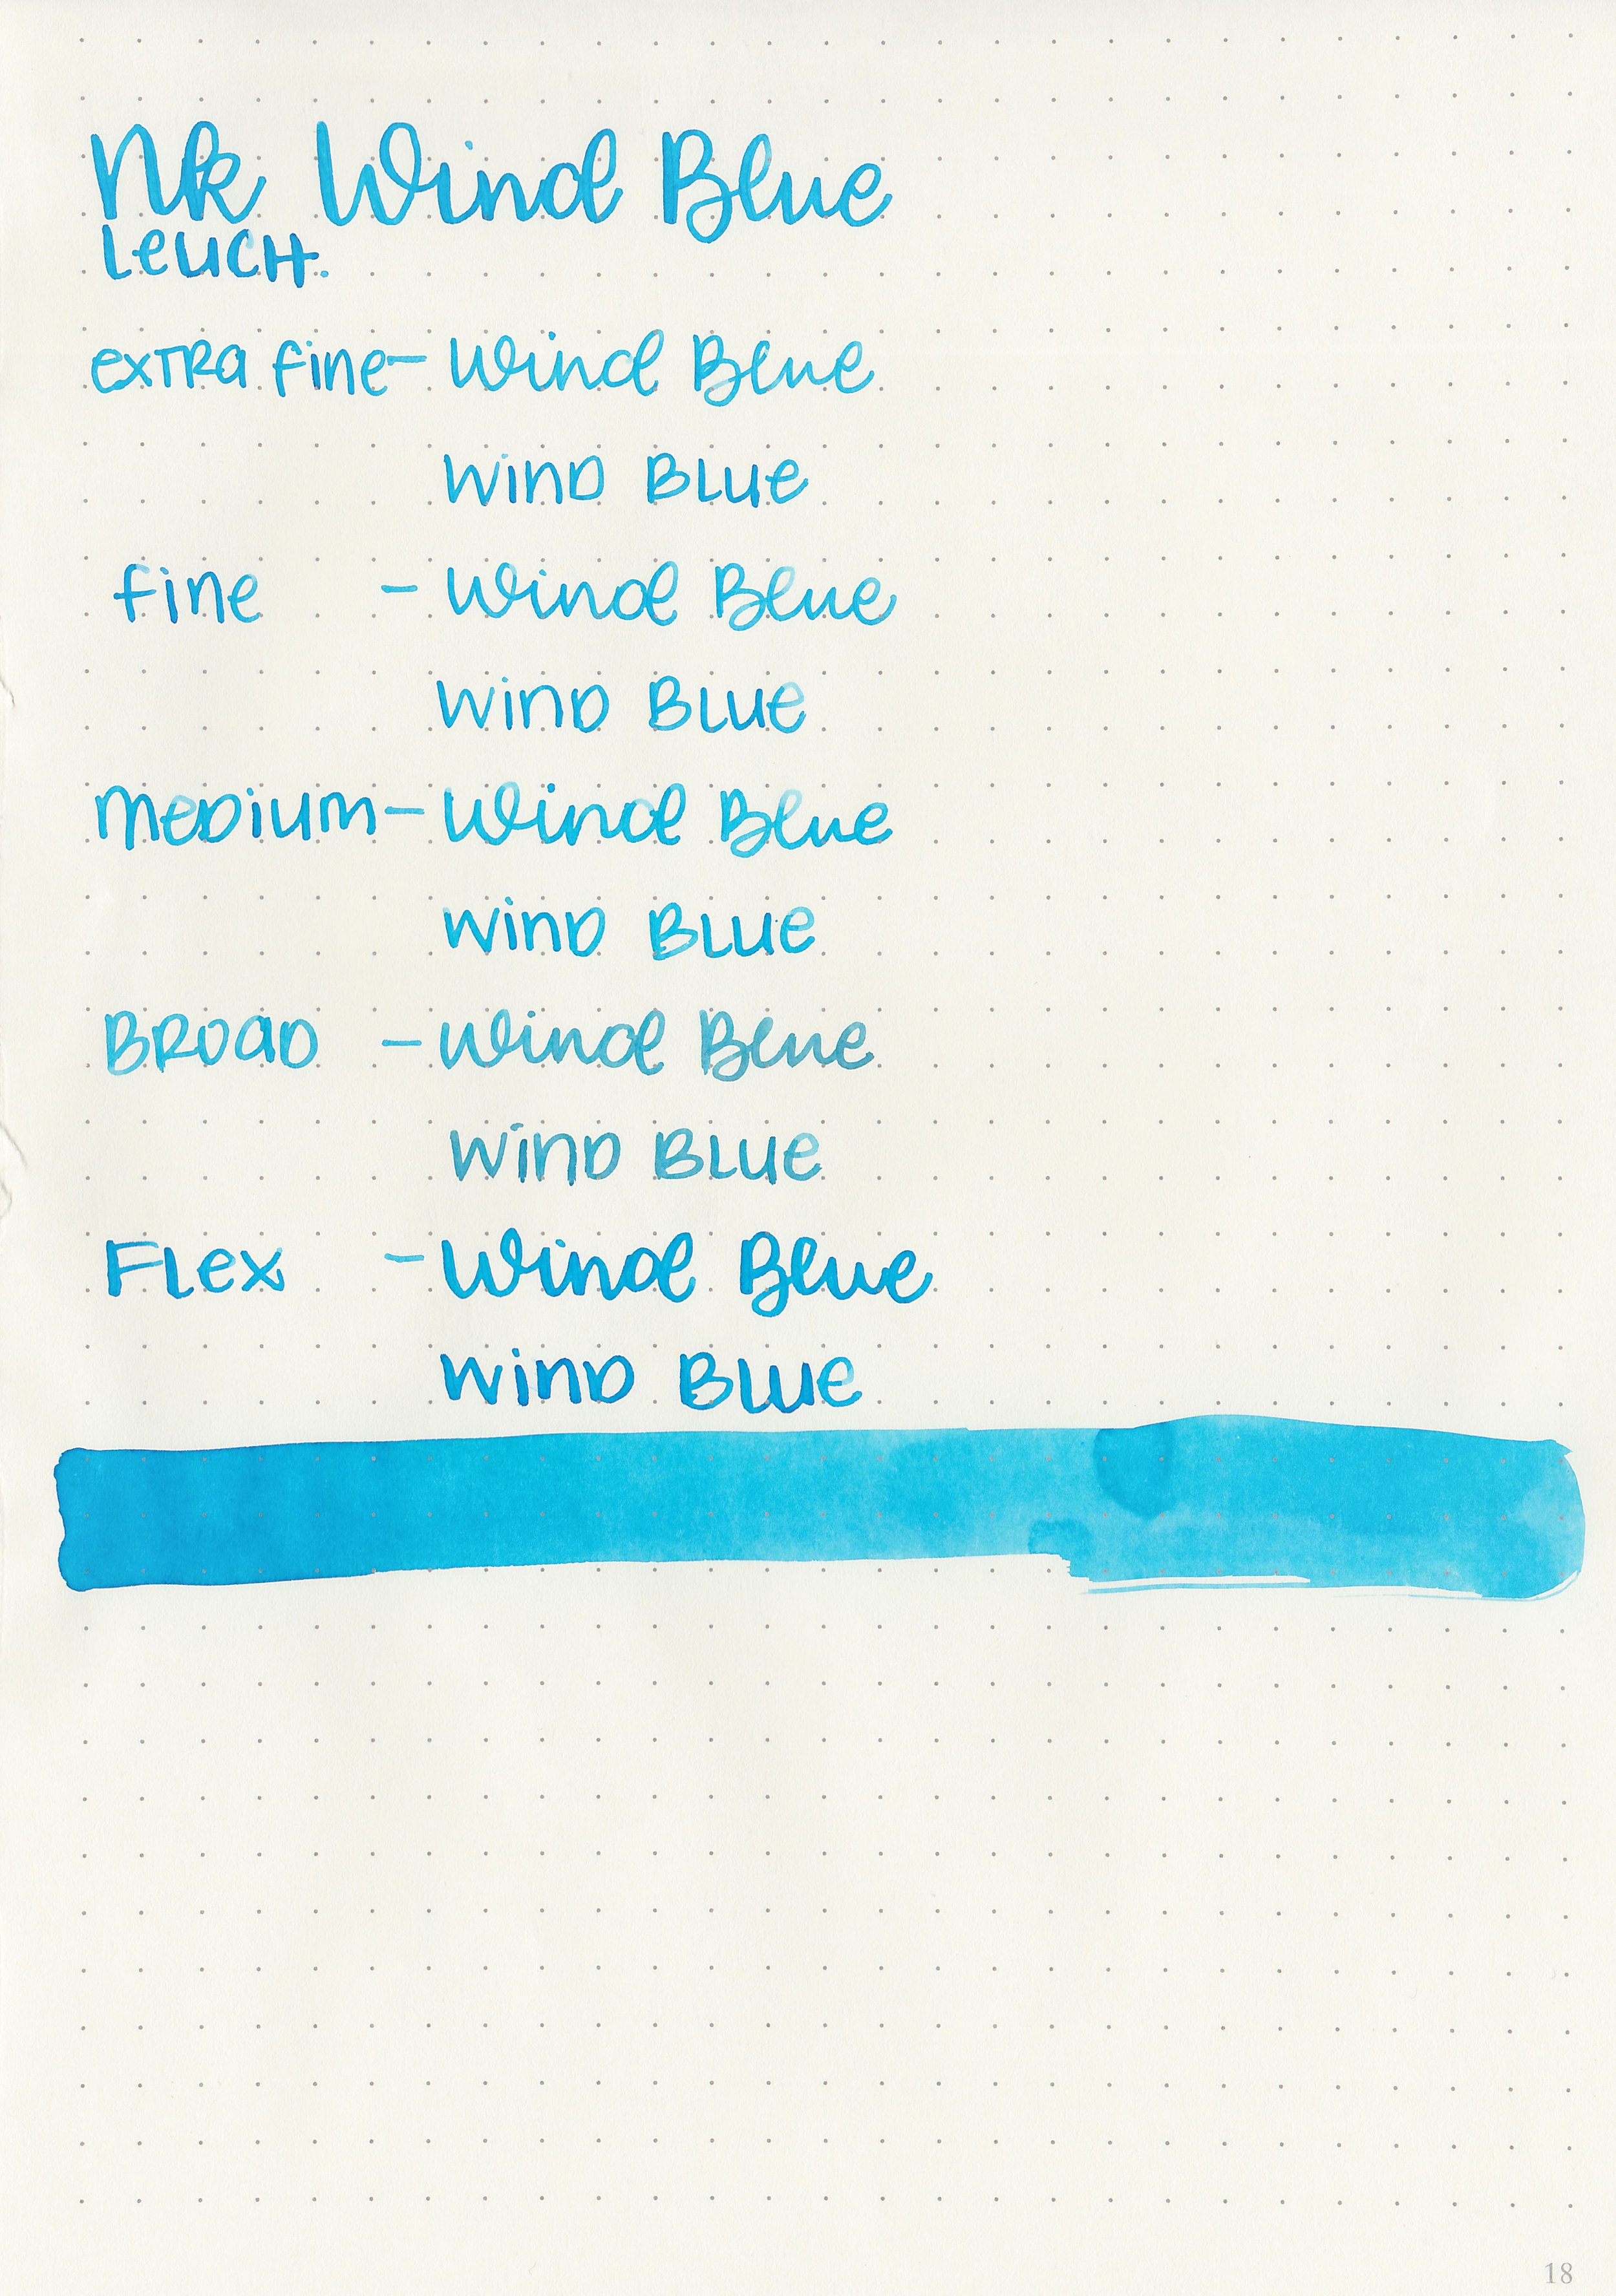 Nk Wind Blue
Leuch.
extra fine - Wind Blue
Wind Blue
fine - Wind Blue
Wind Blue
Medium - Wind Blue
Wind Blue
Broad - Wind Blue
Wind Blue
Flex - Wind Blue
Wind Blue
18